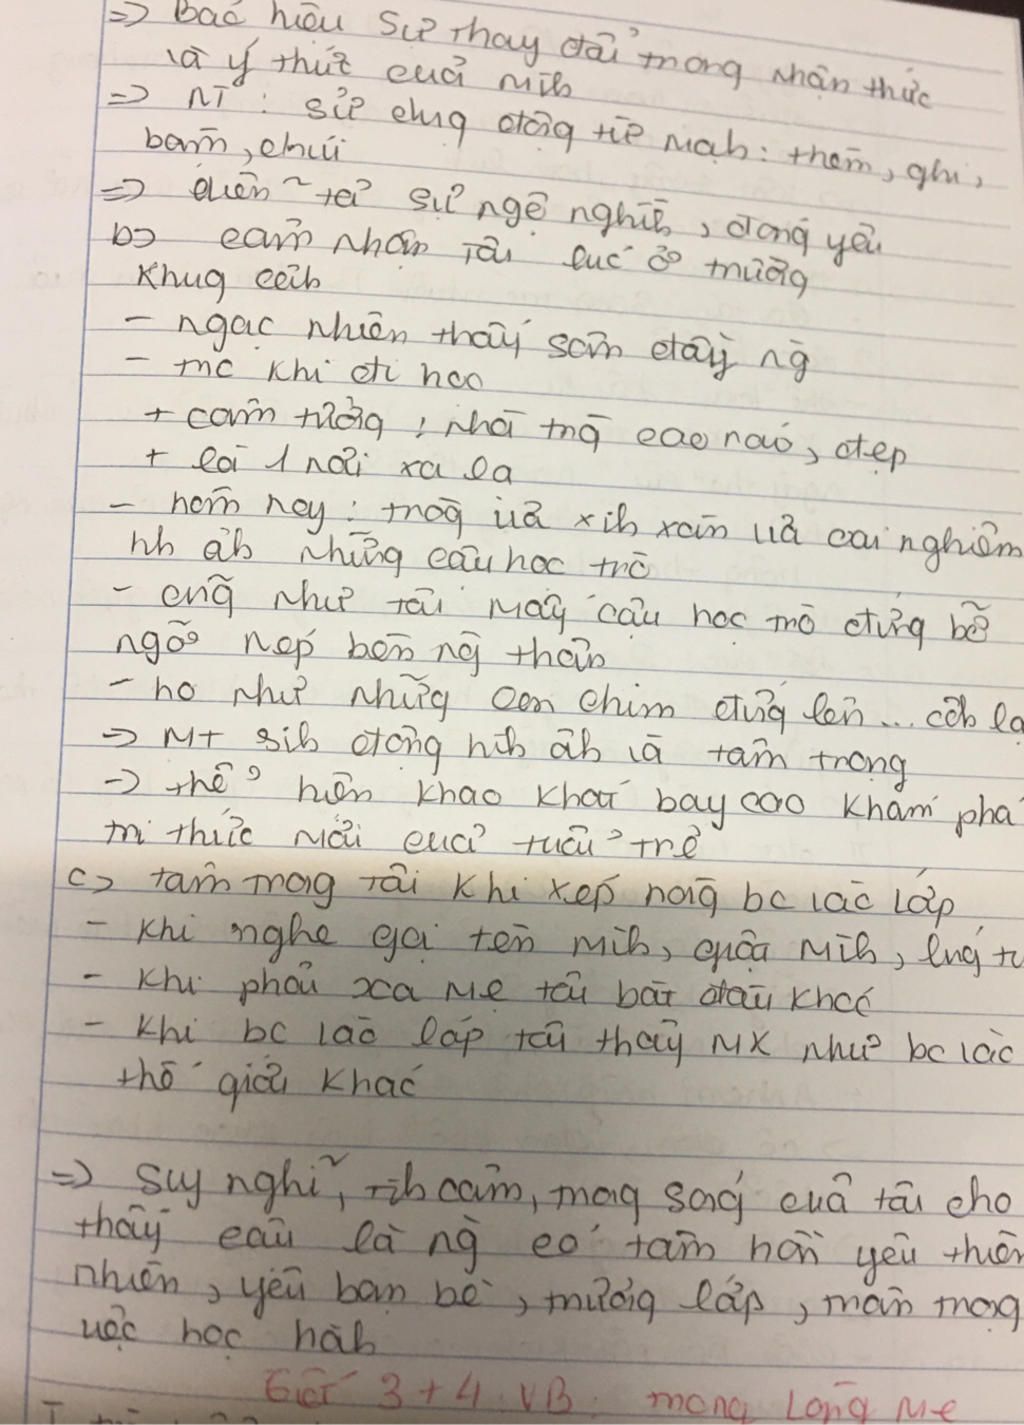 => Báo hiệu sự thay đổi trong nhận thức
và ý thức của mìh
=> NT : sử dụg độg từ mạh : thèm, ghì,
bặm, chúi
=> diễn tả sự ngộ nghĩh, đág yêu
b> cảm nhận tôi lúc ở trườg
Khug cảh
- ngạc nhiên thấy sân đầy ng`
- trc khi đi học
+ cảm tưởg : nhà trg cao ráo, đẹp
+ là 1 nơi xa lạ
- hôm nay : trôg vừa xih xắn vừa oai nghiêm
hh ảh những cậu học trò
- cũg như tôi mấy cậu học trò đứng bỡ
ngỡ nép bên ng` thân
- họ như nhữg con chim đứg lên ... cảh lạ
=> MT sih độg hìh ảh và tâm trạng
=> thể hiện khao khát bay cao khám phá
tri thức mới của tuổi trẻ
c> tâm trạg tôi khi xếp hàg bc vào lớp
- khi nghe gọi tên mìh, giật mìh, lúg tú
- khi phải xa mẹ tôi bắt đầu khóc
- khi bc vào lớp tôi thấy MX như bc vào
thế giới khác
=> Suy nghĩ, tìh cảm, trog ság của tôi cho
thấy cậu là ng` có tâm hồn yêu thiên
nhiên, yêu bạn bè, trườg lớp, trân trọg
việc học hàh
Tiết 3 + 4 VB : Trong Lòng Mẹ